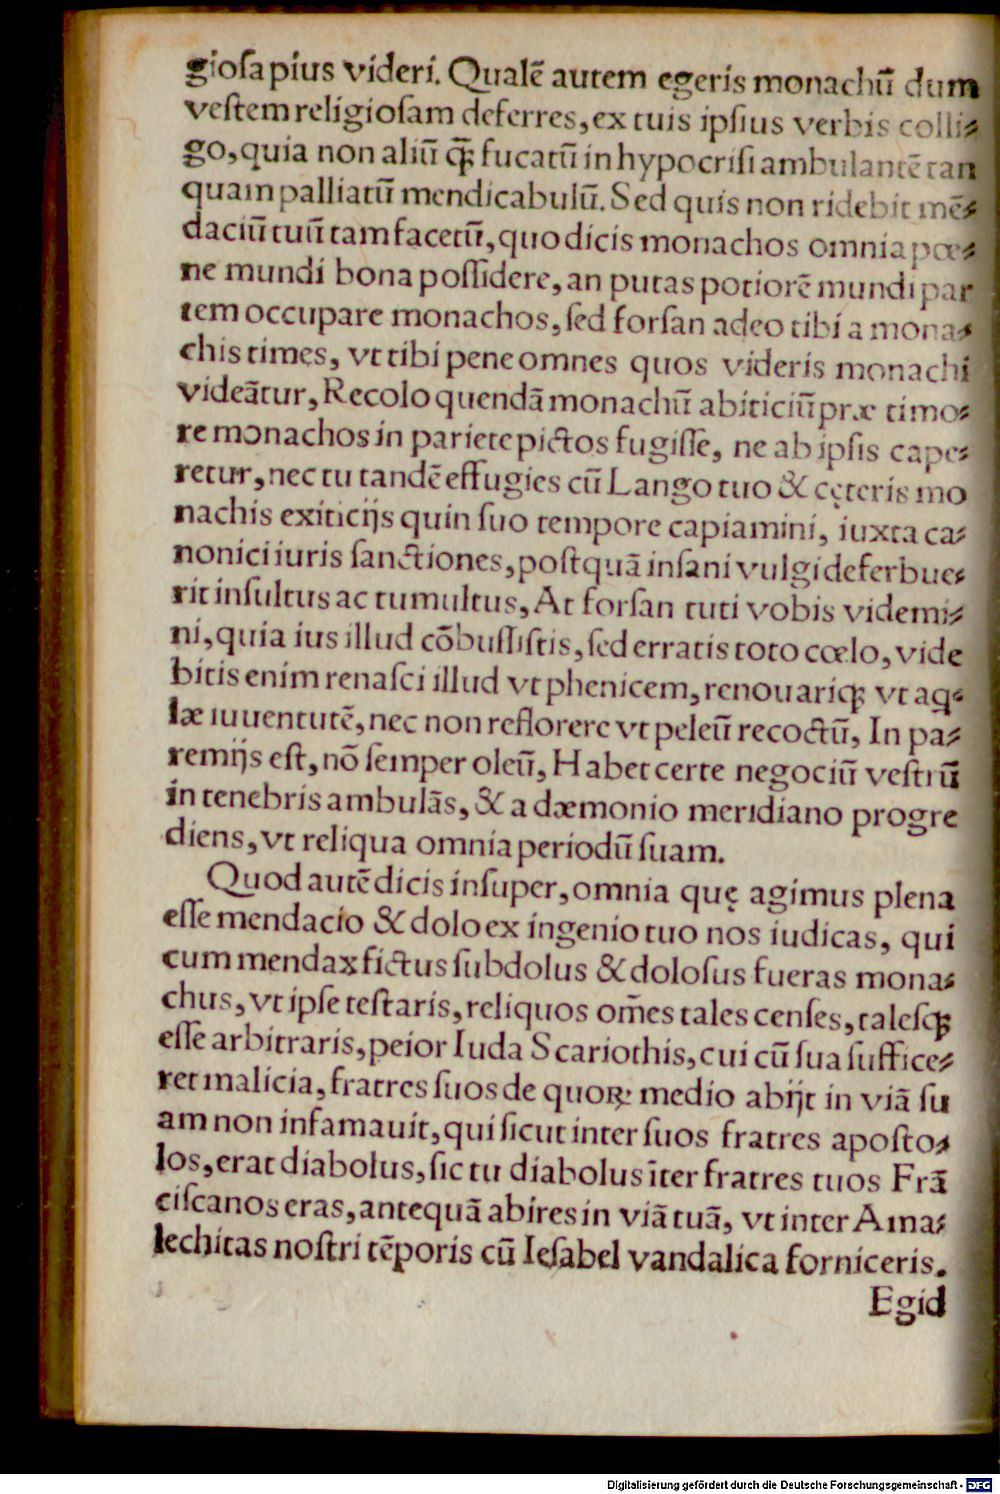 gioſa pius videri. Qualē autem egeris monachū dum
veſtem religioſam deferres, ex tuis ipſius verbis colli⸗
go, quia non aliū ꝙ̄ fucatū in hypocriſi ambulantē tan
quam palliatū mendicabulū. Sed quis non ridebit mē⸗
daciū tuū tam facetū, quo dicis monachos omnia pœ⸗
ne mundi bona poſſidere, an putas potiorē mundi par
tem occupare monachos, ſed forſan adeo tibi a mona⸗
chis times, vt tibi pene omnes quos videris monachi
videātur, Recolo quendā monachū abiticiū præ timo⸗
re monachos in pariete pictos fugiſſe, ne ab ipſis cape⸗
retur, nec tu tandē effugies cū Lango tuo & cęteris mo
nachis exiticijs quin ſuo tempore capiamini, iuxta ca⸗
nonici iuris ſanctiones, poſtquā inſani vulgi deferbue⸗
rit inſultus ac tumultus, At forſan tuti vobis videmi⸗
ni, quia ius illud cōbuſſiſtis, ſed erratis toto cœlo, vide
bitis enim renaſci illud vt phenicem, renouariqꝫ vt aq̇⸗
læ iuuentutē, nec non reflorere vt peleū recoctū, In pa⸗
remijs eſt, nō ſemper oleū, Habet certe negociū veſtrū
in tenebris ambulās, & a dæmonio meridiano progre
diens, vt reliqua omnia periodū ſuam.
Quod autē dicis inſuper, omnia quę agimus plena
eſſe mendacio & dolo ex ingenio tuo nos iudicas, qui
cum mendax fictus ſubdolus & doloſus fueras mona⸗
chus, vt ipſe teſtaris, reliquos om̄es tales cenſes, taleſqꝫ
eſſe arbitraris, peior Iuda Scariothis, cui cū ſua ſuffice⸗
ret malicia, fratres ſuos de quoꝝ medio abijt in viā ſu
am non infamauit, qui ſicut inter ſuos fratres apoſto⸗
los, erat diabolus, ſic tu diabolus īter fratres tuos Frā
ciſcanos eras, antequā abires in viā tuā, vt inter Ama⸗
lechitas noſtri tēporis cū Ieſabel vandalica forniceris.
Egid
Digitalisierung gefördert durch die Deutsche Forschungsgemeinschaft - DFG